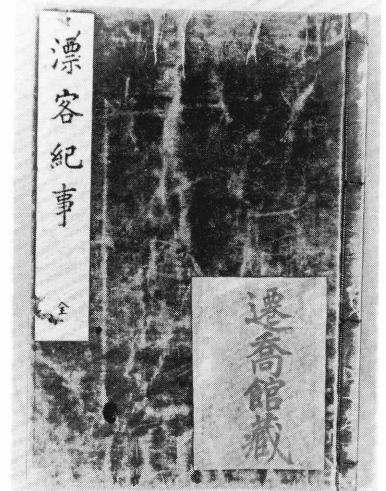 漂客紀事
全
遷喬館藏